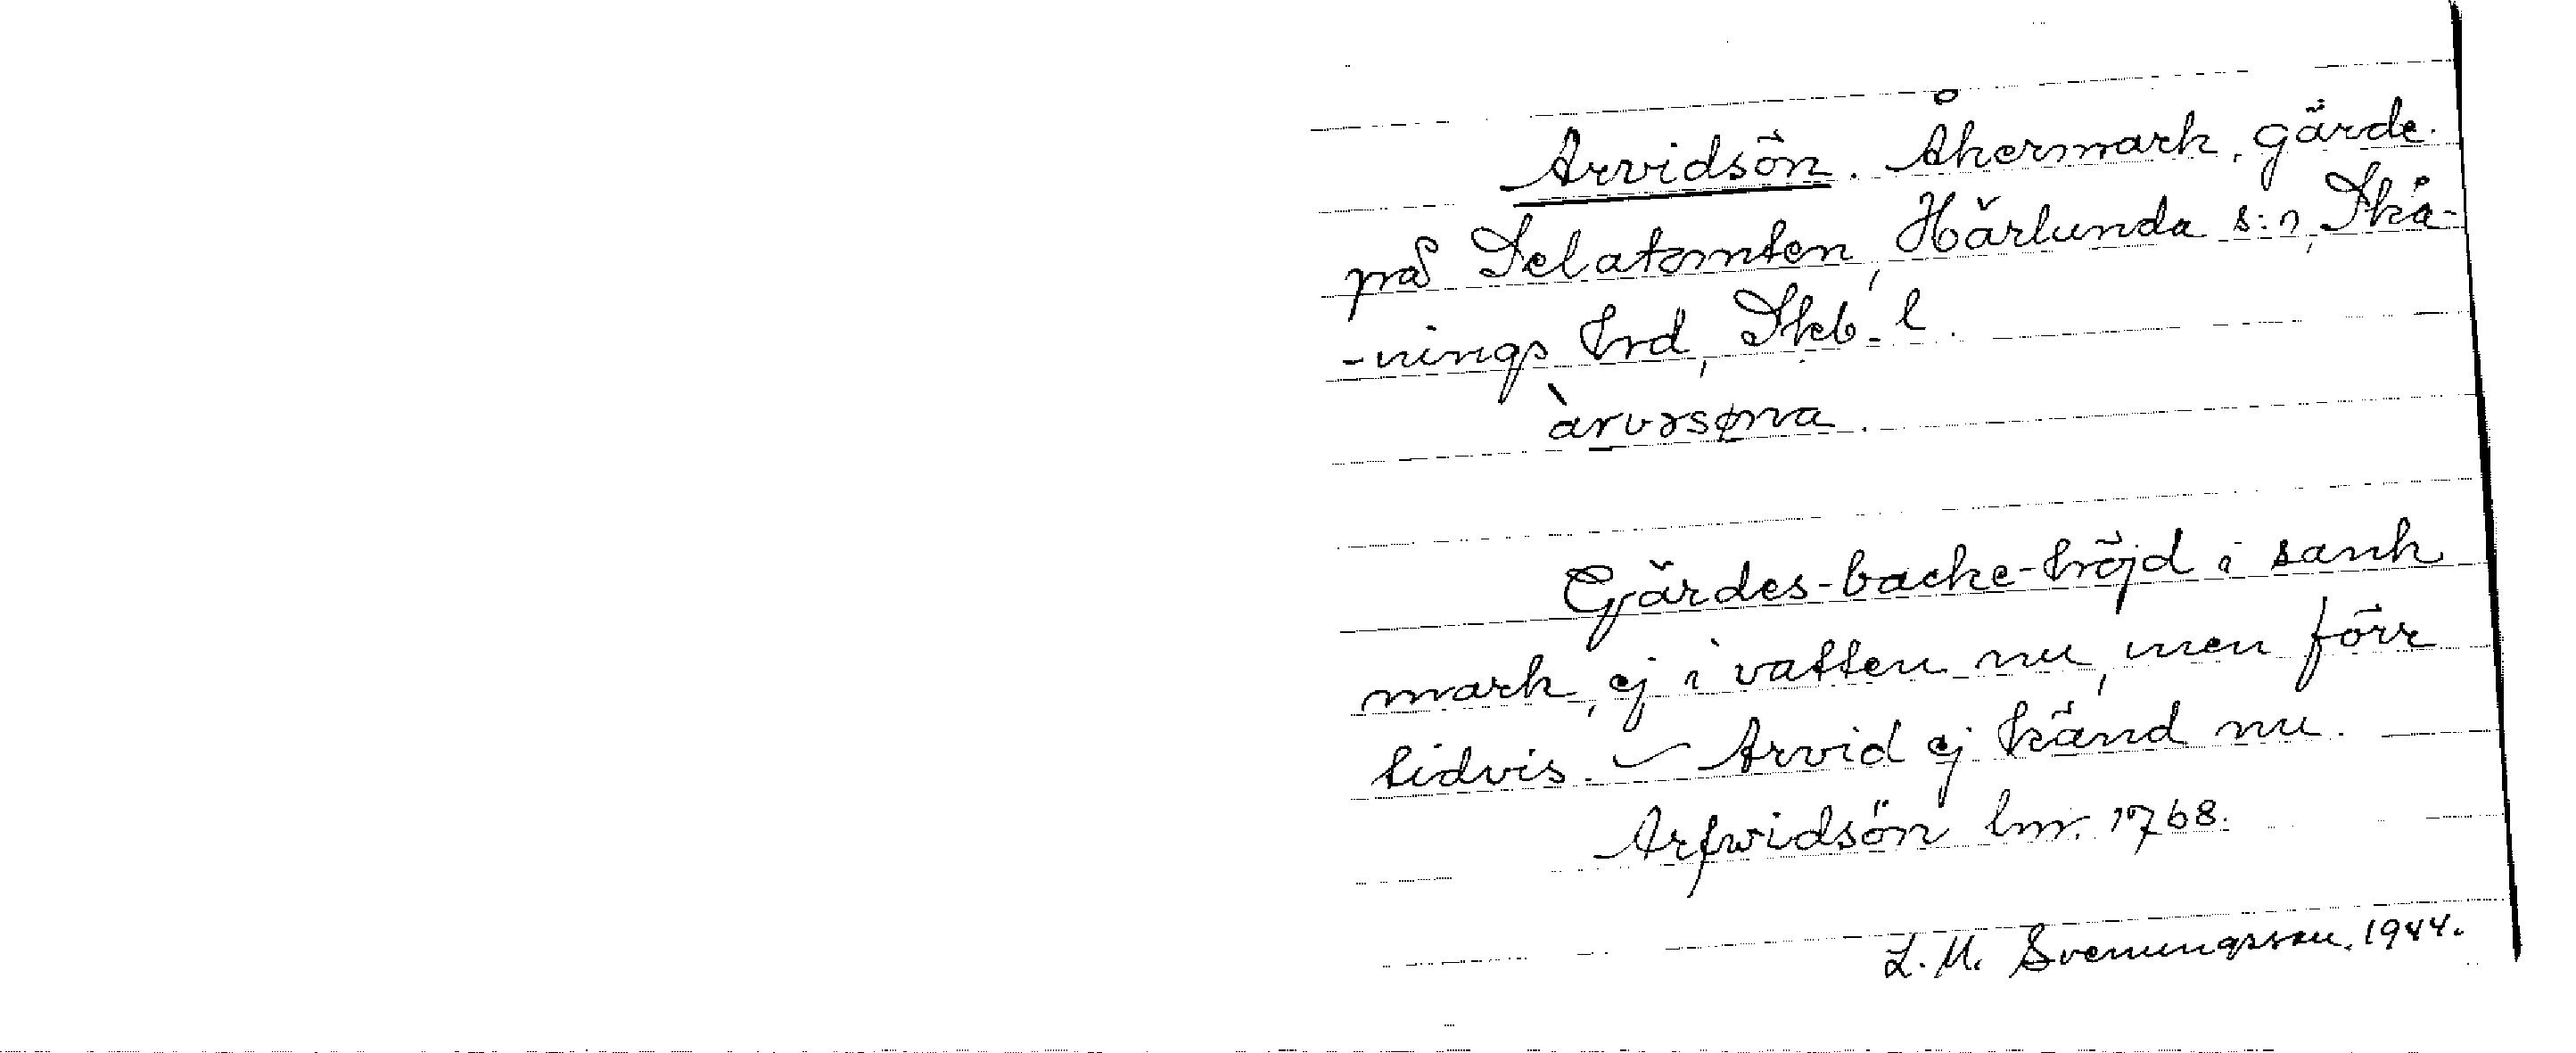 Arvidsön. Åkermark, gärde.
på Selatomten, Härlunda s:n, Skå-
-nings hrd, Skb. l.
àrvəsøna.
Gärdes-backe-höjd i sank
mark, ej i vatten nu, men förr
tidvis. – Arvid ej känd nu.
Arfwidsön lm. 1768.
L. M. Svenungsson. 1944.